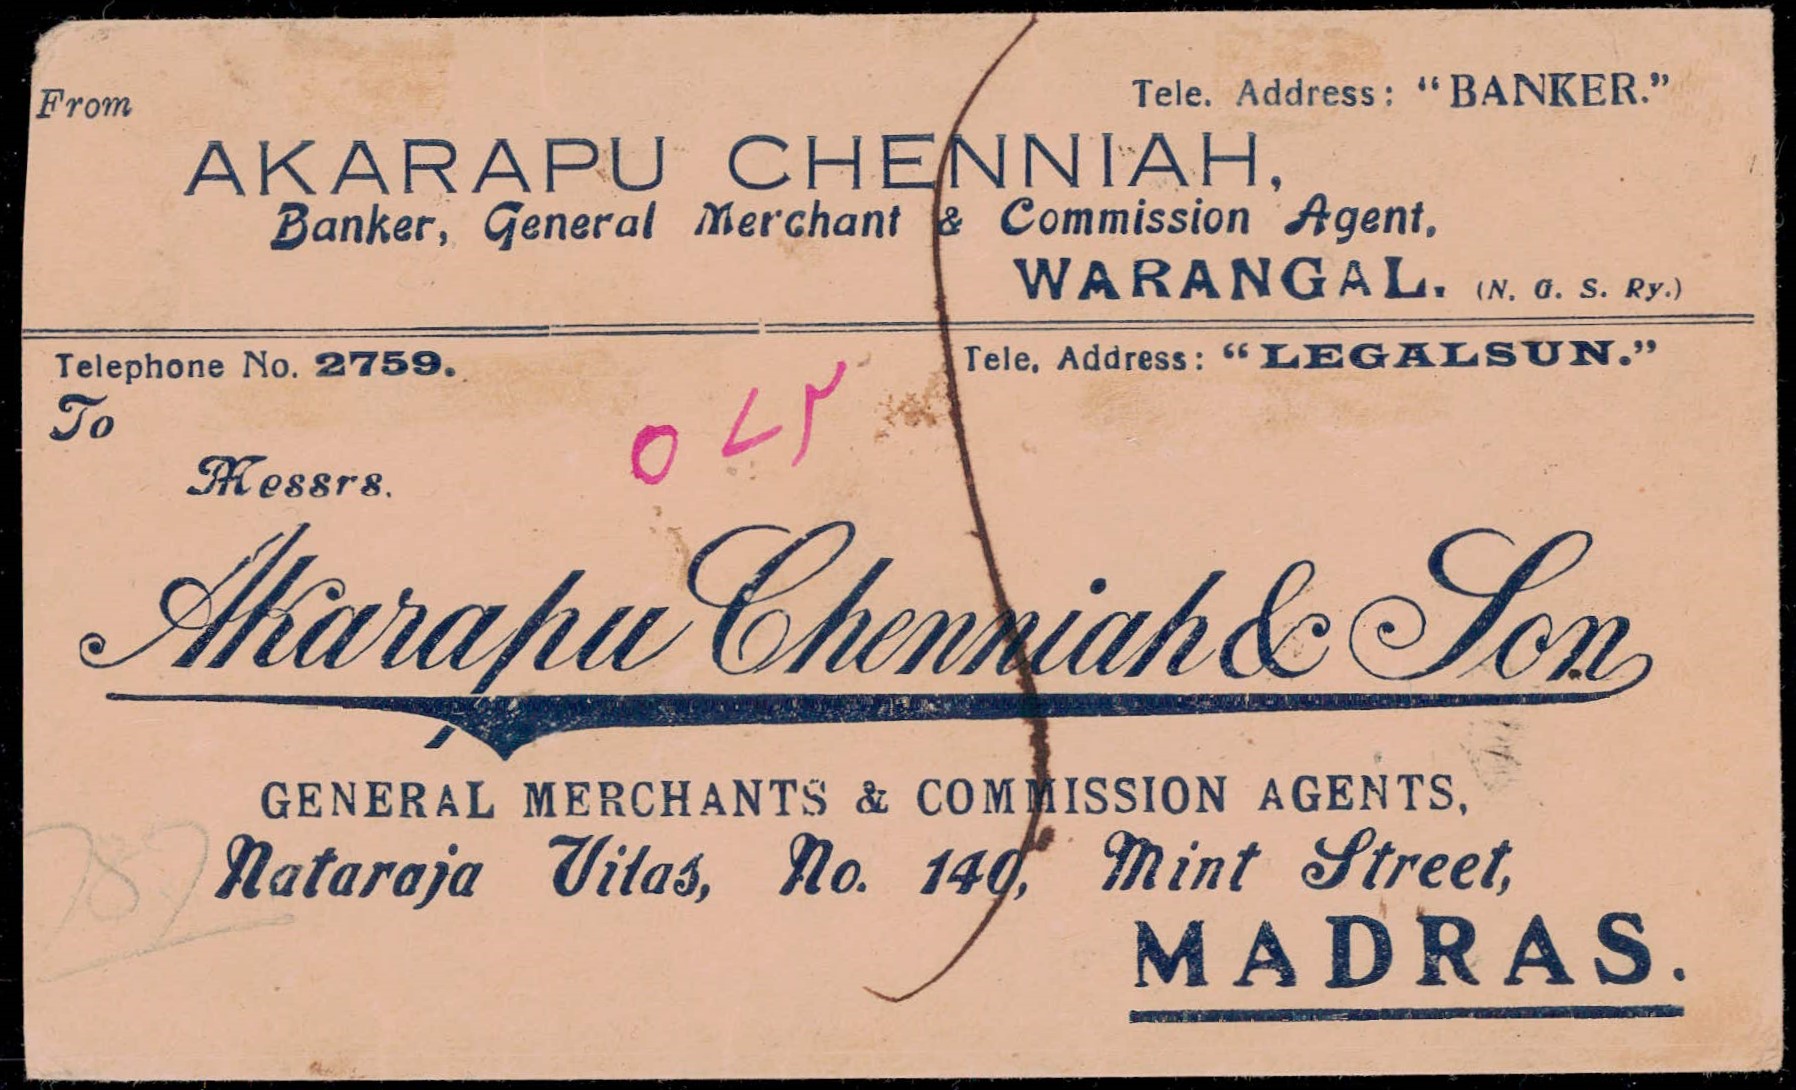 From
Tele. Address: "BANKER."
AKARAPU CHENNIAH,
Banker, General Merchant & Commission Agent,
WARANGAL. (N. G. S. Ry.)
Telephone No. 2759.
Tele. Address: "LEGALSUN."
To
Messrs.
Akarapu Chenniah & Son
GENERAL MERCHANTS & COMMISSION AGENTS,
Nataraja Vilas, No. 140, Mint Street,
MADRAS.